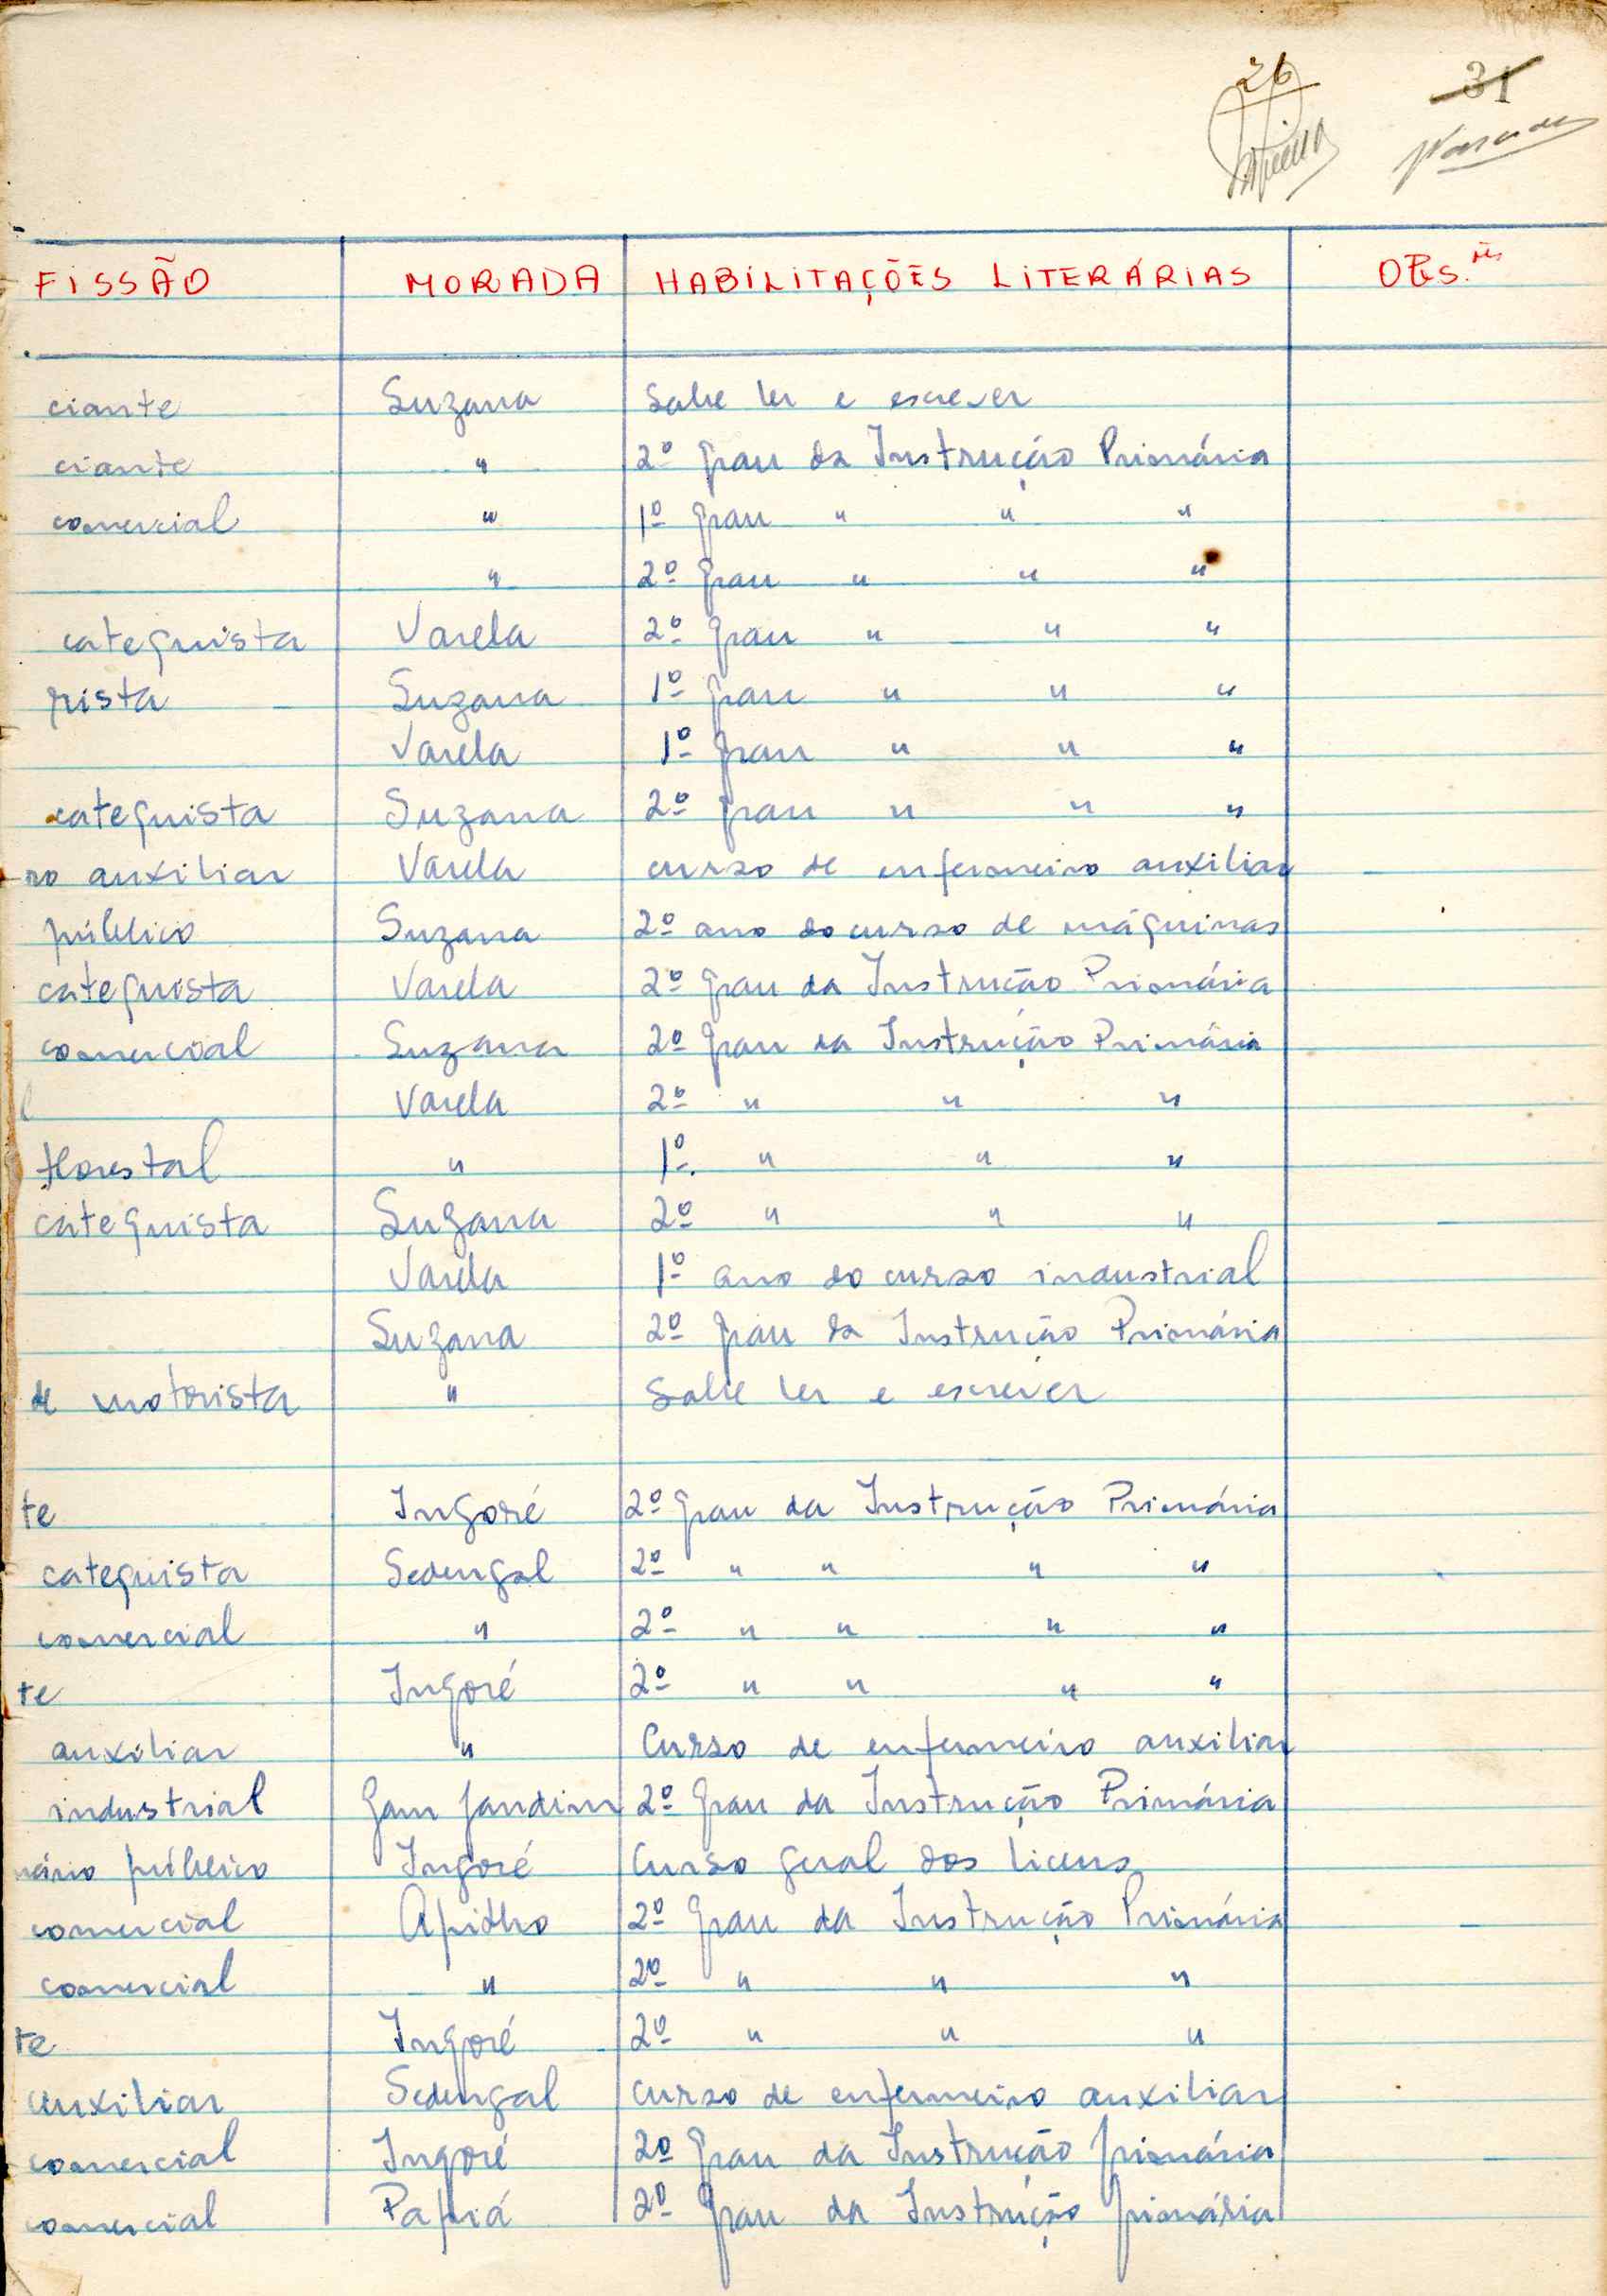 26 31
FISSÃO MORADA HABILITAÇÕES LITERÁRIAS OBS.ões
ciante Suzana Sabe ler e escrever
ciante " 2º grau da Instrução Primária
comercial " 1º grau " " "
" 2º grau " " "
catequista Varela 2º grau " " "
rista Suzana 1º grau " " "
Varela 1º grau " " "
catequista Suzana 2º grau " " "
ro auxiliar Varela curso de enfermeiro auxiliar
público Suzana 2º ano do curso de máquinas
catequista Varela 2º grau da Instrução Primária
comercial Suzana 2º grau da Instrução Primária
l Varela 2º " " "
florestal " 1º " " "
catequista Suzana 2º " " "
Varela 1º ano do curso industrial
Suzana 2º grau da Instrução Primária
de motorista " Sabe ler e escrever
te Ingoré 2º grau da Instrução Primária
catequista Sedengal 2º " " " "
comercial " 2º " " " "
te Ingoré 2º " " " "
auxiliar " Curso de enfermeiro auxiliar
industrial Gam Jandim 2º grau da Instrução Primária
nário público Ingoré Curso geral dos liceus
comercial Apilho 2º grau da Instrução Primária
comercial " 2º " " "
te Ingoré 2º " " "
auxiliar Sedengal curso de enfermeiro auxiliar
comercial Ingoré 2º grau da Instrução primária
comercial Papiá 2º grau da Instrução primária